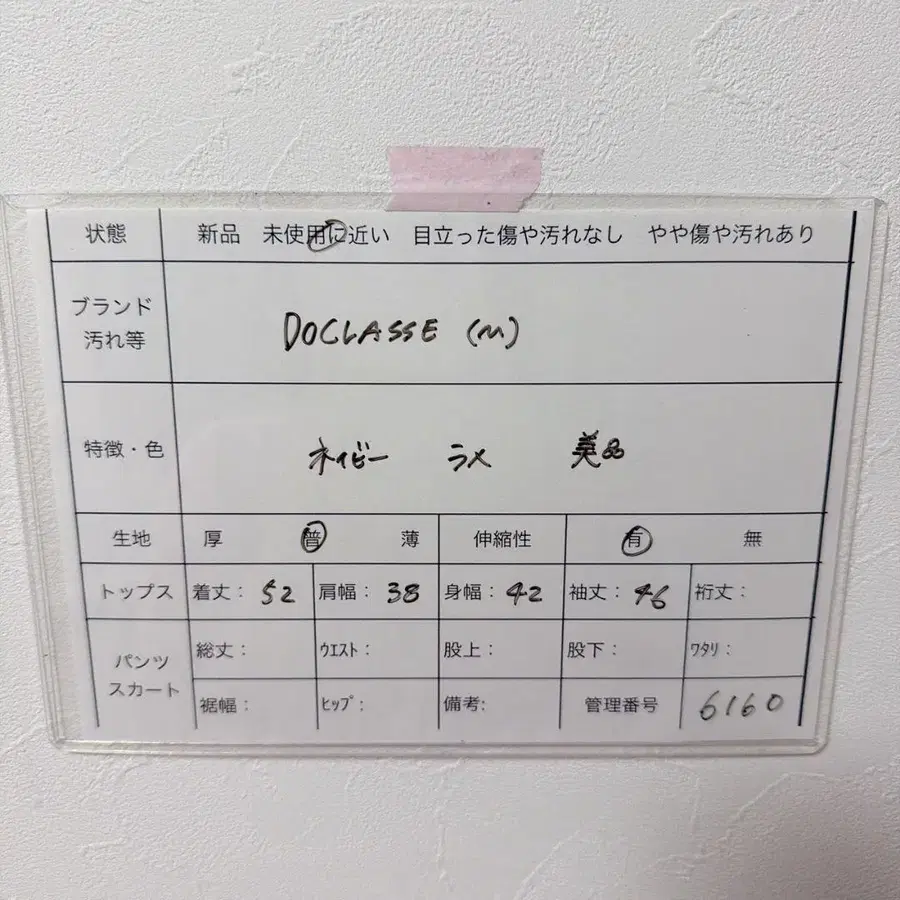 状態 新品 未使用に近い 目立った傷や汚れなし やや傷や汚れあり
ブランド
汚れ等
DOCLASSE (M)
特徴・色 ネイビー ラメ 美品
生地 厚 普 薄 伸縮性 有 無
トップス 着丈: 52 肩幅: 38 身幅: 42 袖丈: 46 裄丈:
パンツ
スカート
総丈: ウエスト: 股上: 股下: ワタリ:
裾幅: ヒップ: 備考: 管理番号 6160